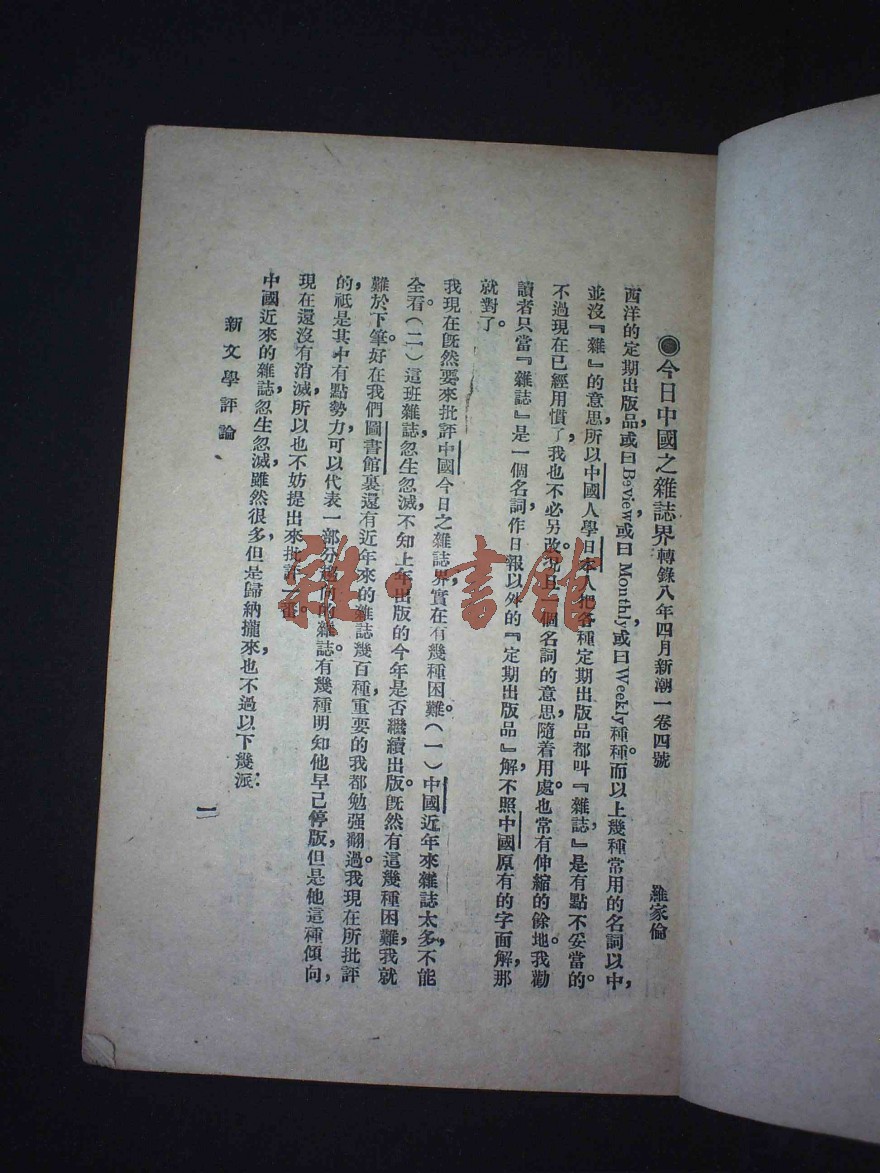 ●今日中國之雜誌界 轉錄八年四月新潮一卷四號 羅家倫
西洋的定期出版品，或曰Beview，或曰Monthly，或曰Weekly種種。而以上幾種常用的名詞以中，
並沒『雜』的意思。所以中國人學日本人把各種定期出版品都叫『雜誌』，是有點不妥當的。
不過現在已經用慣了，我也不必另改。況且一個名詞的意思，隨着用處，也常有伸縮的餘地。我勸
讀者只當『雜誌』是一個名詞，作日報以外的『定期出版品』解，不照中國原有的字面解，那
就對了。
我現在旣然要來批評中國今日之雜誌界，實在有幾種困難。（一）中國近年來雜誌太多，不能
全看。（二）這班雜誌忽生忽滅，不知上年出版的今年是否繼續出版。旣然有這幾種困難，我就
難於下筆。好在我們圖書館裏還有近年來的雜誌幾百種，重要的我都勉强翻過。我現在所批評
的，祇是其中有點勢力可以代表一部分趨向的雜誌。有幾種明知他早已停版，但是他這種傾向，
現在還沒有消滅，所以也不妨提出來批評一番。
中國近來的雜誌忽生忽滅，雖然很多，但是歸納攏來，也不過以下幾派：
新文學評論
一
雜·書館